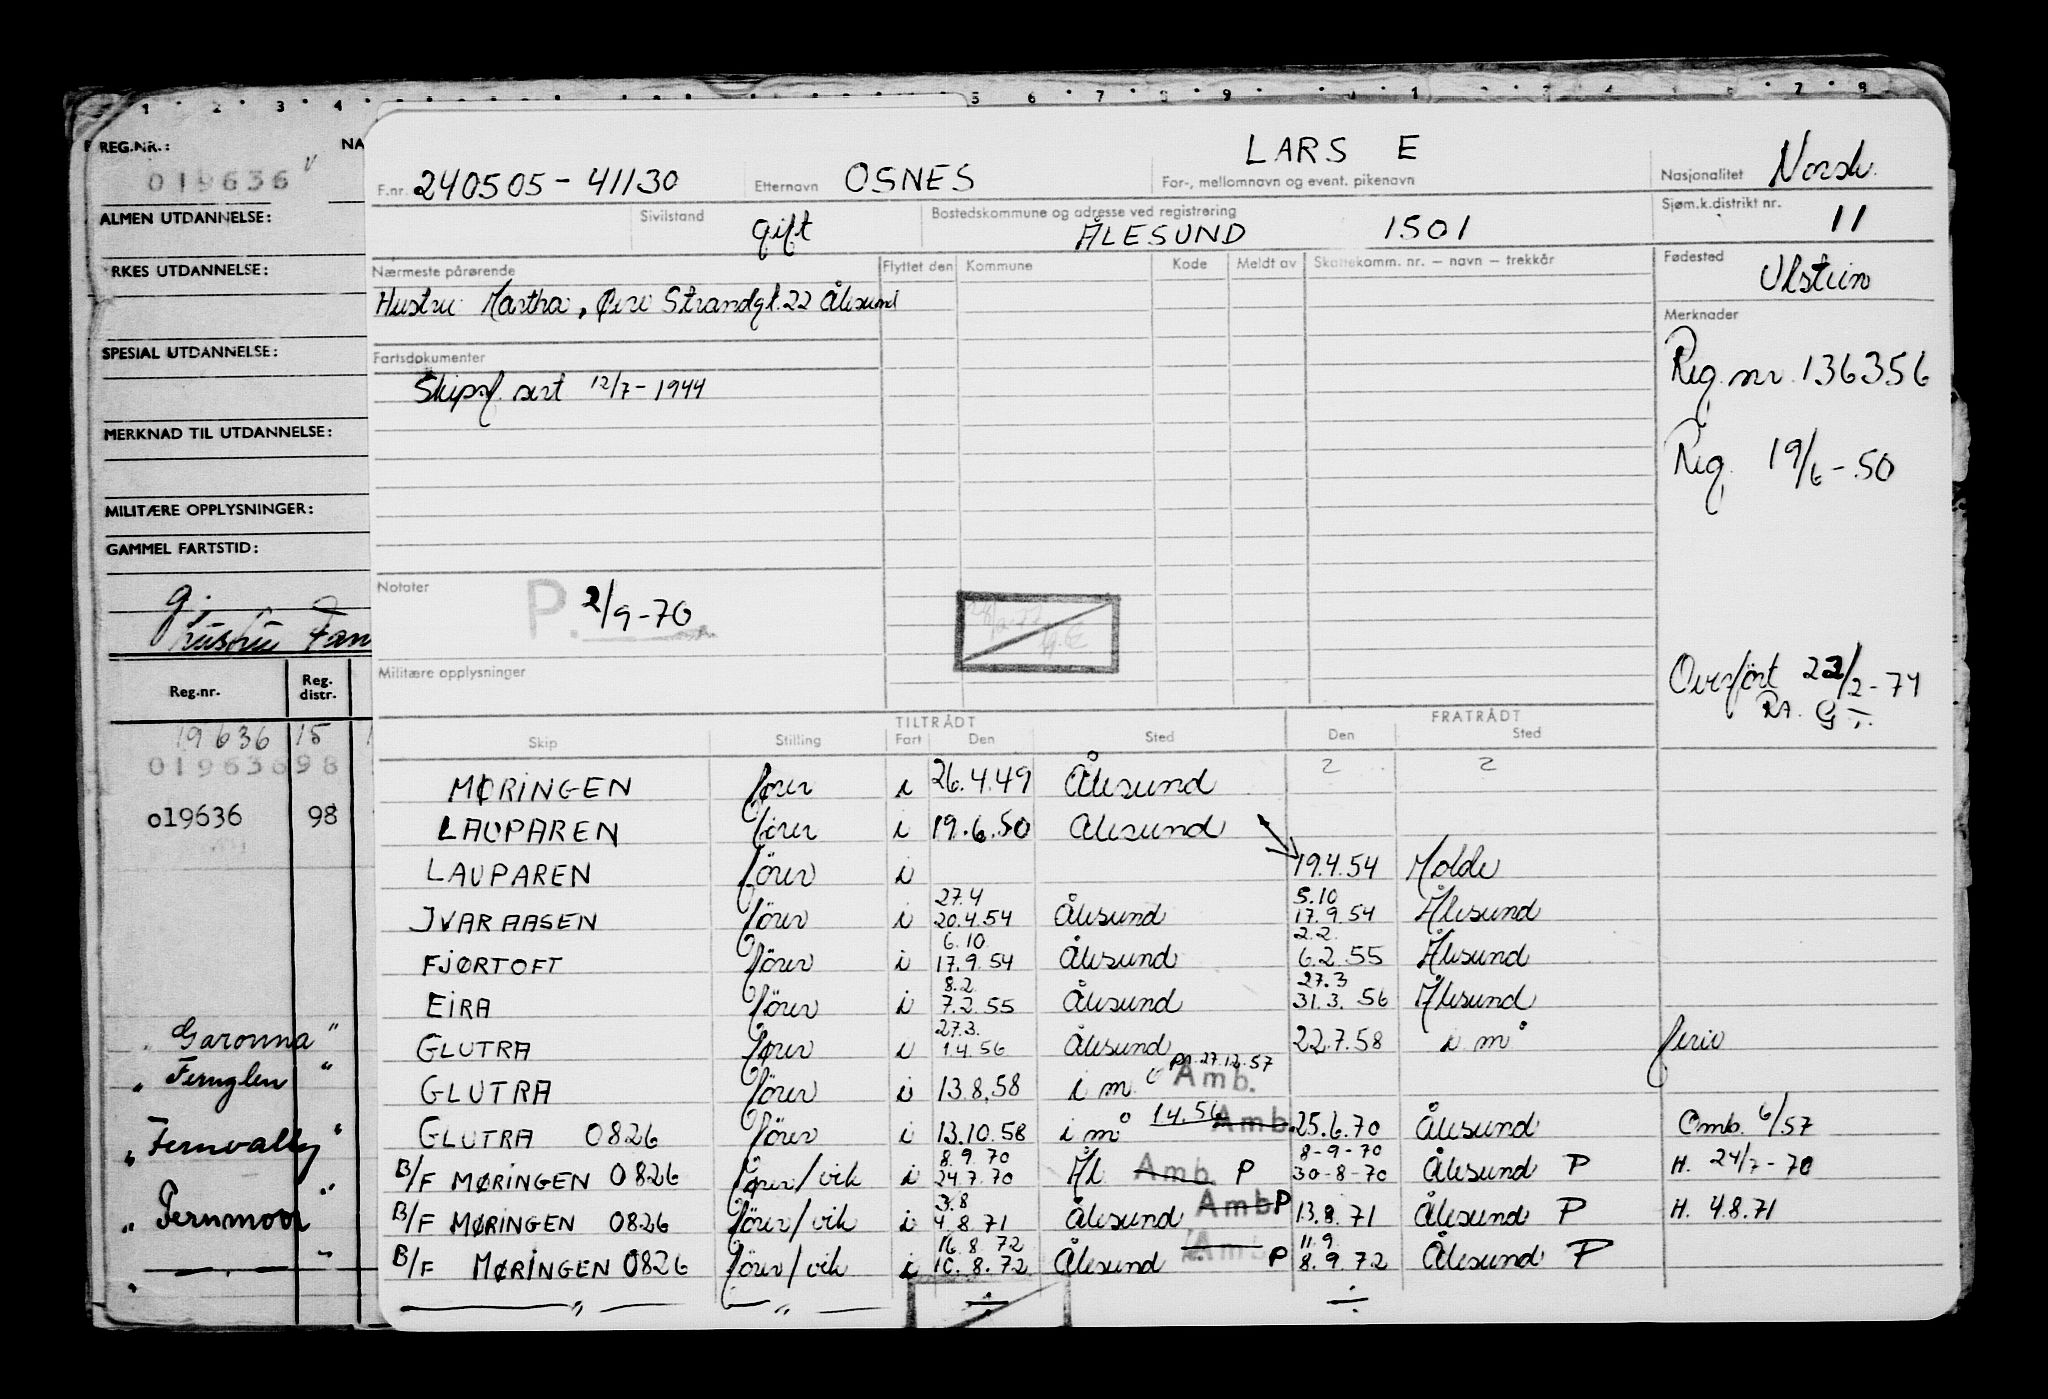 REG.NR.: NA
019636
ALMEN UTDANNELSE:
RKES UTDANNELSE:
SPESIAL UTDANNELSE:
MERKNAD TIL UTDANNELSE:
MILITÆRE OPPLYSNINGER:
GAMMEL FARTSTID:
g.
Hustru
Reg.nr. Reg. distr.
19636 15
019636 98
o19636 98
" Garonna "
" Fernglen "
" Fernvally "
" Fernmoor "
F.nr. 240505-41130 Etternavn OSNES LARS E For-, mellomnavn og event. pikenavn Nasjonalitet Norsk.
Sivilstand gift Bostedskommune og adresse ved registrering ÅLESUND 1501 Sjøm.k.distrikt nr. 11
Nærmeste pårørende Flyttet den Kommune Kode Meldt av Skattekomm. nr. – navn – trekkår Fødested Ulstein
Hustru Martha, Øvre Strandgt. 22 Ålesund
Merknader
Reg. nr. 136356
Fartsdokumenter
Skipsf. sert 12/7-1944
Reg. 19/6-50
Notater P. 2/9-70
Militære opplysninger
Overført 22/2-74
TILTRÅDT FRATRÅDT
Skip Stilling Fart Den Sted Den Sted
2 2
MØRINGEN fører i 26.4.49 Ålesund
LAUPAREN fører i 19.6.50 Ålesund
LAUPAREN fører i 19.4.54 Molde
27.4 5.10
IVAR AASEN fører i 20.4.54 Ålesund 17.9.54 Ålesund
6.10 2.2.
FJØRTOFT fører i 17.9.54 Ålesund 6.2.55 Ålesund
8.2. 27.3
EIRA fører i 7.2.55 Ålesund 31.3.56 Ålesund
27.3.
GLUTRA fører i 1.4.56 Ålesund 22.7.58 i m ferie
PA. 27.12.57
GLUTRA fører i 13.8.58 i m Amb.
GLUTRA 0826 fører i 13.10.58 i m 1.4.56 Amb. 25.6.70 Ålesund Omb. 6/57
8.9.70 8-9-70
B/F MØRINGEN 0826 fører/vik i 24.7.70 Ål Amb. P 30-8-70 Ålesund P H. 24/7-70
3.8
B/F MØRINGEN 0826 fører/vik i 4.8.71 Ålesund Amb P 13.8.71 Ålesund P H. 4.8.71
16.8 72 11.9
B/F MØRINGEN 0826 fører/vik i 10.8.72 Ålesund Amb P 8.9.72 Ålesund P